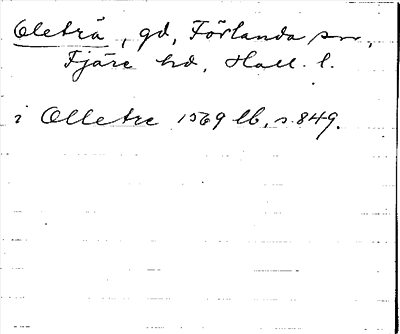 Oleträ, gd, Förlanda sn,
Fjäre hd, Hall. l.
i Olletre 1569 lb, s. 849.